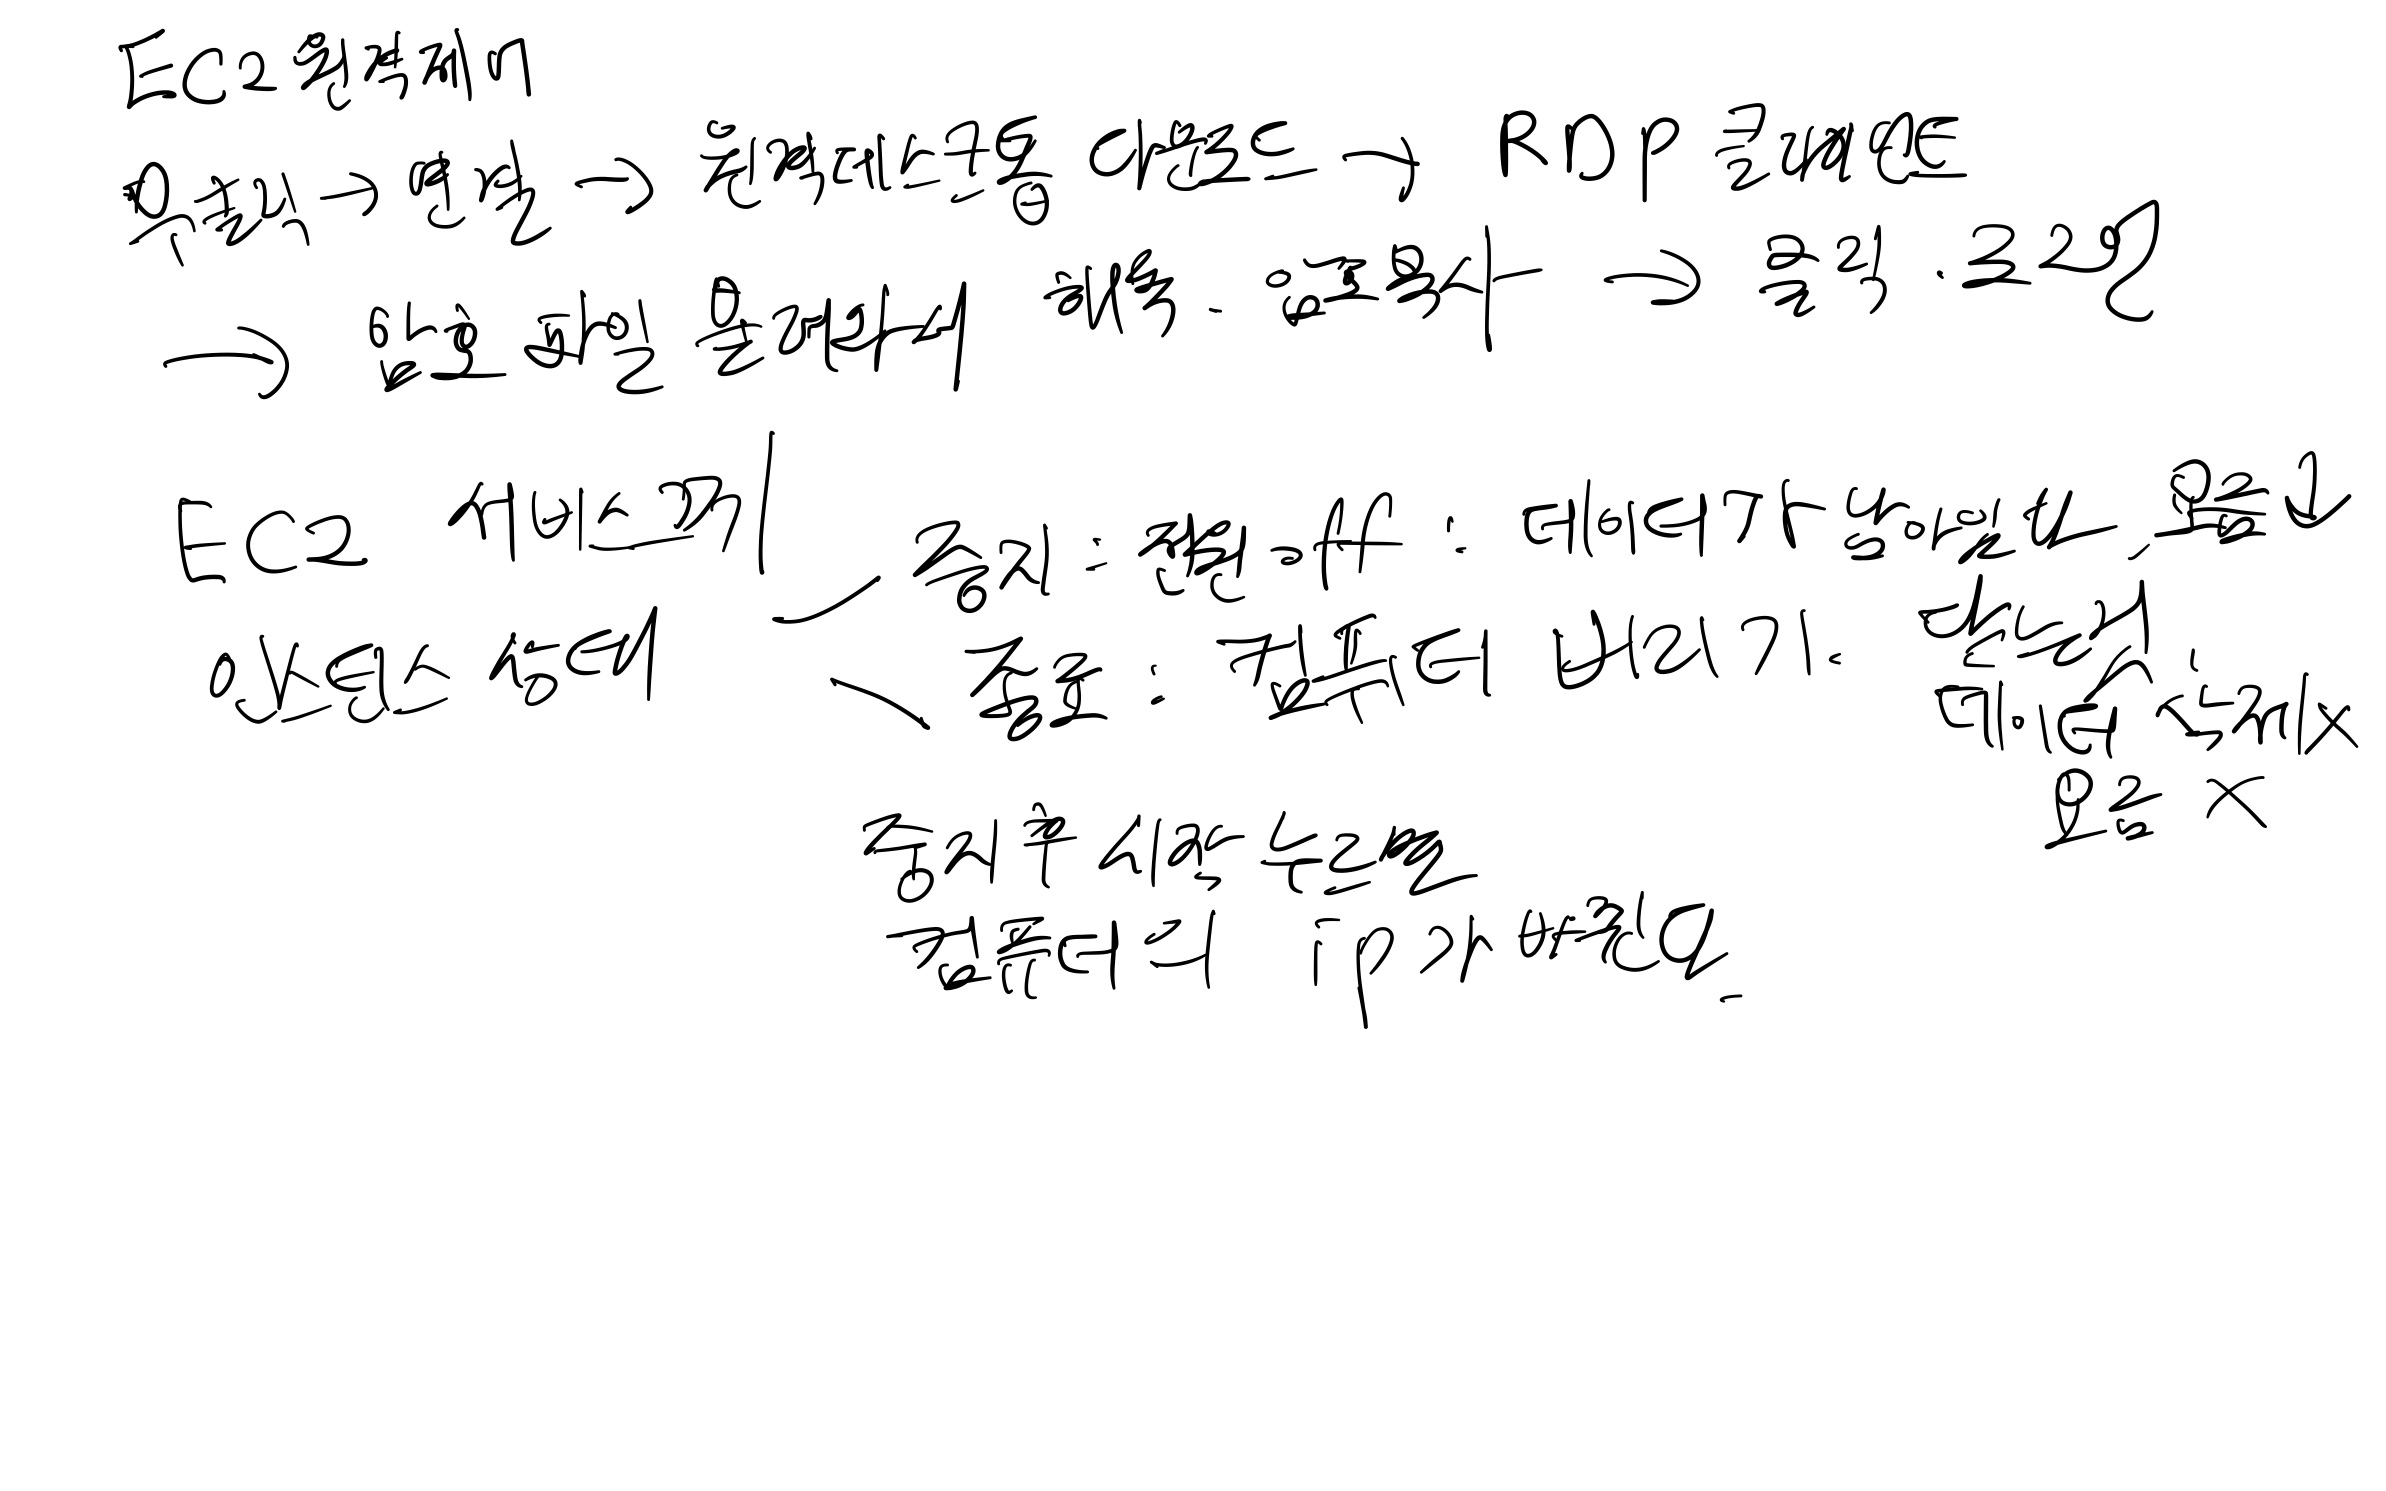 EC2 원격제어
우클릭 → 연결 → 원격데스크톱 다운로드 → RDP 클라이언트
→ 암호 파일 올려서 해독. 암호복사 → 클릭. 로그인
EC2 서비스 쪽
인스턴스 상태
중지 : 전원 off : 데이터가 남아있음. 요금↓
종료 : 컴퓨터 버리기.
데이터 삭제 x
요금 x
중지 후 시작 누르면
컴퓨터의 ip가 바뀐다.